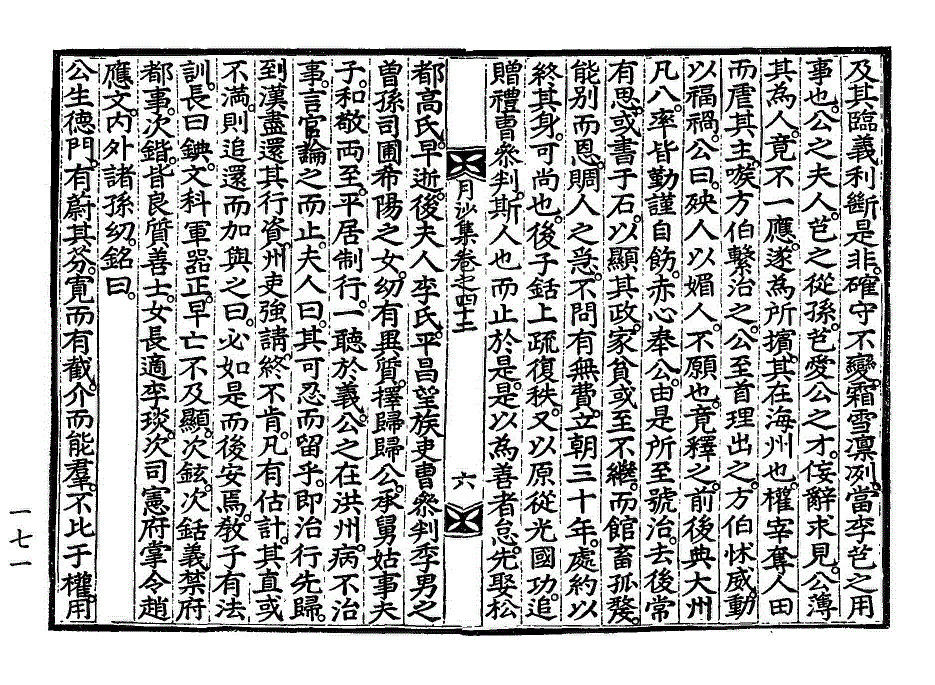 及其臨義利斷是非。確守不變。霜雪凛冽。當李芑之用
事也。公之夫人。芑之從孫。芑愛公之才。侫辭求見。公薄
其為人。竟不一應。遂為所擯。其在海州也。權宰奪人田
而虐其主。嗾方伯繫治之。公至首理出之。方伯怵威。動
以福禍。公曰。殃人以媚人。不願也。竟釋之。前後典大州
凡八。率皆勤謹自飭。赤心奉公。由是所至號治。去後常
有思。或書于石。以顯其政。家貧或至不繼。而館畜孤嫠。
能別而恩。賙人之急。不問有無費。立朝三十年。處約以
終其身。可尚也。後子銛上疏復秩。又以原從光國功。追
贈禮曹叅判。斯人也而止於是。是以為善者怠。先娶松
月沙集卷之四十二
六
都高氏。早逝。後夫人李氏。平昌望族。吏曹叅判季男之
曾孫。司圃希陽之女。幼有異質。擇歸歸公。承舅姑事夫
子。和敬両至。平居制行。一聽於義。公之在洪州。病不治
事。言官論之而止。夫人曰。其可忍而留乎。即治行先歸。
到漢盡還其行資。州吏強請。終不肯。凡有估計。其直或
不滿。則追還而加與之曰。必如是而後安焉。教子有法
訓。長曰錪。文科軍器正。早亡不及顯。次鉉。次銛。義禁府
都事。次鍇。皆良質善士。女長適李琰。次司憲府掌令趙
應文。内外諸孫幼。銘曰。
公生德門。有蔚其芬。寛而有截。介而能羣。不比于權。用
一七一